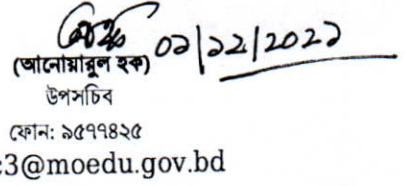 ০১/১২/২০২১
(আনোয়ারুল হক)
উপসচিব
ফোন: ৯৫৭৭৪২৫
c3@moedu.gov.bd